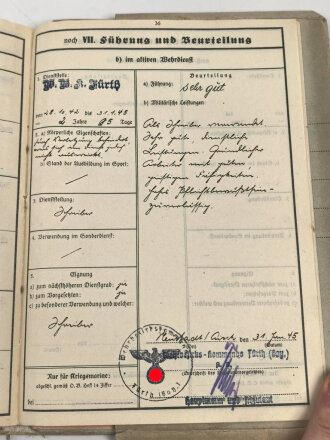 36
noch VII. Führung und Beurteilung
b) im aktiven Wehrdienst
1. Dienststelle:
W. B. K. Fürth
vom 28.10.42 bis 31.1.45
2 Jahre 95 Tage
2. a) Körperliche Eigenschaften:
b) Stand der Ausbildung im Sport:
3. Dienststellung:
Schreiber
4. Verwendung im Sonderdienst:
5. Eignung
a) zum nächsthöheren Dienstgrad: ja
b) zum Vorgesetzten: ja
c) zu besonderer Verwendung und welcher:
Schreiber
Nur für Kriegsmarine:
abgeschl. gemäß O. B. Heft 3, Ziffer
bei
Beurteilung
a) Führung: Sehr gut
b) Militärische Leistungen:
Als Schreiber verwendet.
Sehr gute dienstliche
Leistungen. Gründliches
Arbeiten mit guten
geistigen Fähigkeiten.
zuverlässig.
Neustadt/Aisch, den 31. Jan. 45
Wehrbezirks-Kommando Fürth (Bay.)
Hauptmann und Adjutant